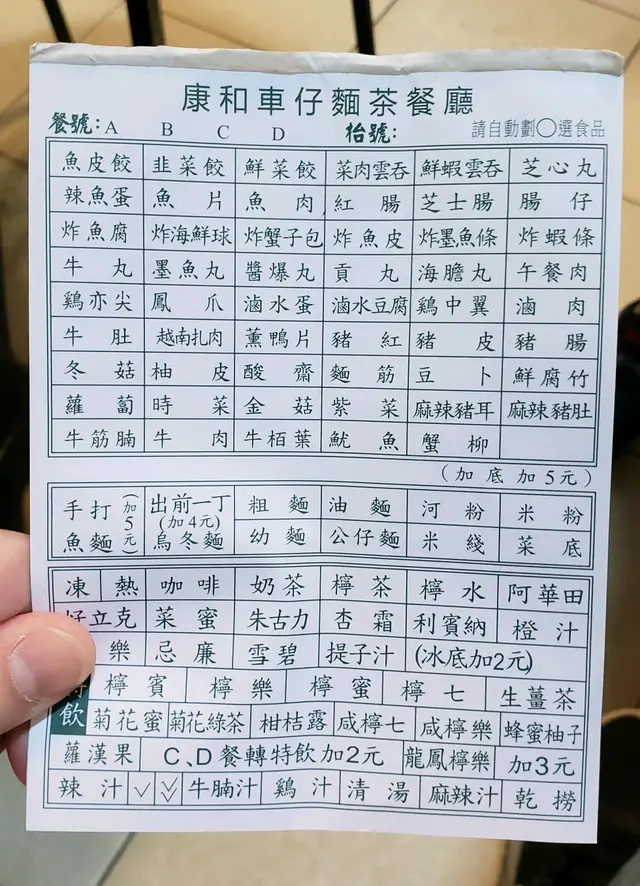 康和車仔麵茶餐廳
餐號: A B C D 枱號: 請自動劃○選食品
魚皮餃 韭菜餃 鮮菜餃 菜肉雲吞 鮮蝦雲吞 芝心丸
辣魚蛋 魚片 魚肉 紅腸 芝士腸 腸仔
炸魚腐 炸海鮮球 炸蟹子包 炸魚皮 炸墨魚條 炸蝦條
牛丸 墨魚丸 醬爆丸 貢丸 海膽丸 午餐肉
鷄亦尖 鳳爪 滷水蛋 滷水豆腐 鷄中翼 滷肉
牛肚 越南扎肉 薰鴨片 豬紅 豬皮 豬腸
冬菇 柚皮 酸齋 麵筋 豆卜 鮮腐竹
蘿蔔 時菜 金菇 紫菜 麻辣豬耳 麻辣豬肚
牛筋腩 牛肉 牛栢葉 魷魚 蟹柳
(加底加5元)
手打魚麵(加5元) 出前一丁(加4元)烏冬麵 粗麵 油麵 河粉 米粉
幼麵 公仔麵 米綫 菜底
凍 熱 咖啡 奶茶 檸茶 檸水 阿華田
立克 菜蜜 朱古力 杏霜 利賓納 橙汁
樂 忌廉 雪碧 提子汁 (冰底加2元)
飲 檸賓 檸樂 檸蜜 檸七 生薑茶
菊花蜜 菊花綠茶 柑桔露 咸檸七 咸檸樂 蜂蜜柚子
蘿漢果 C、D餐轉特飲加2元 龍鳳檸樂 加3元
辣汁 牛腩汁 鷄汁 清湯 麻辣汁 乾撈